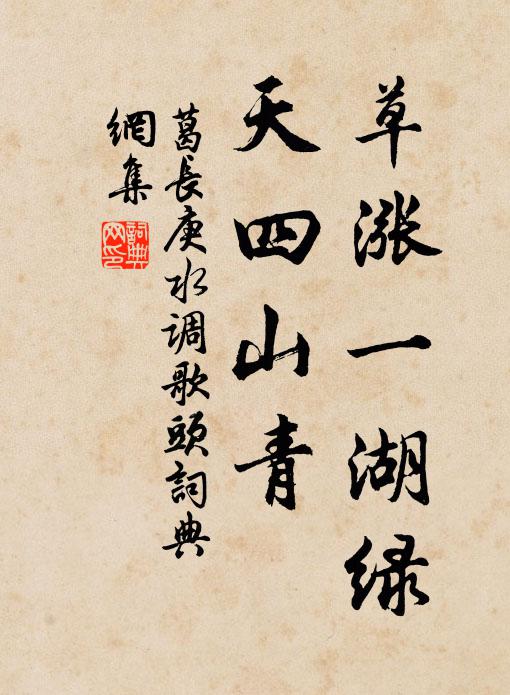 草涨一湖绿
天四山青
葛長庚水调歌頭詞典
網集
詞典
网印